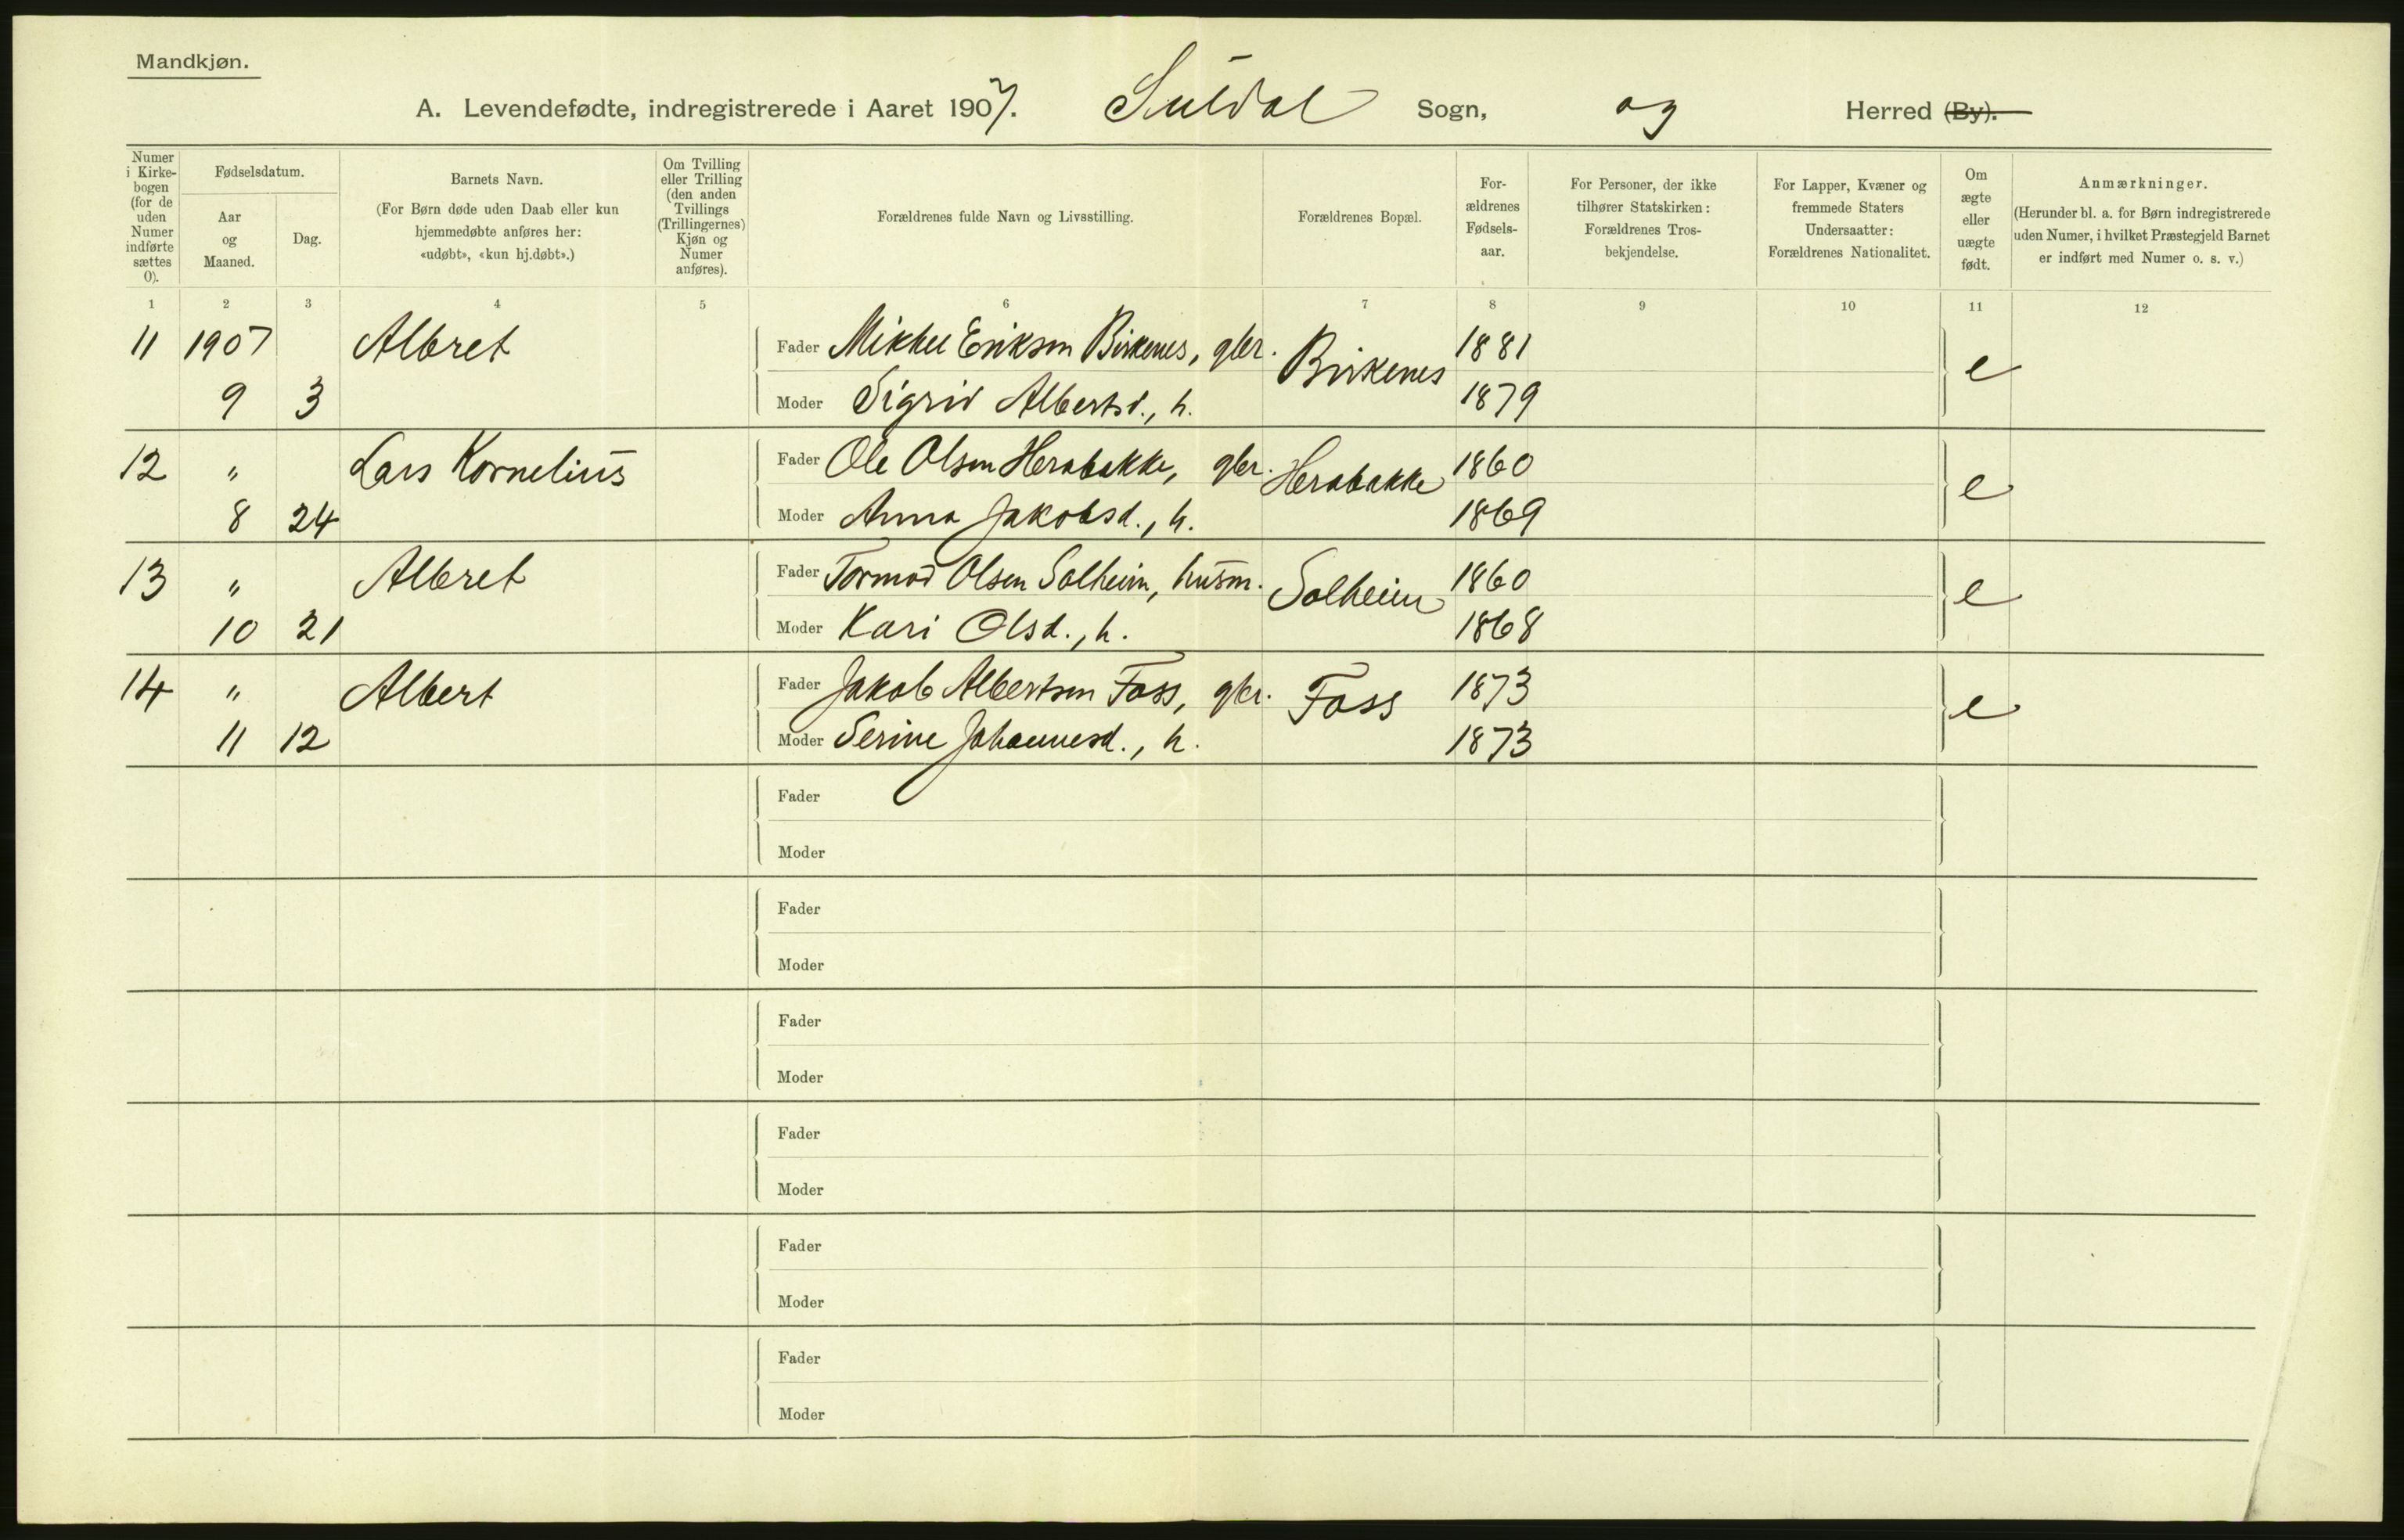 Mandkjøn.
A. Levendefødte, indregistrerede i Aaret 1907. Suldal Sogn, og Herred (By).
Numer i Kirke-bogen (for de uden Numer indførte sættes 0).
Fødselsdatum.
Aar og Maaned.
Dag.
Barnets Navn.
(For Børn døde uden Daab eller kun hjemmedøbte anføres her: «udøbt», «kun hj.døbt».)
Om Tvilling eller Trilling (den anden Tvillings (Trillingernes) Kjøn og Numer anføres).
Forældrenes fulde Navn og Livsstilling.
Forældrenes Bopæl.
For-ældrenes Fødsels-aar.
For Personer, der ikke tilhører Statskirken: Forældrenes Tros-bekjendelse.
For Lapper, Kvæner og fremmede Staters Undersaatter: Forældrenes Nationalitet.
Om ægte eller uægte født.
Anmærkninger.
(Herunder bl. a. for Børn indregistrerede uden Numer, i hvilket Præstegjeld Barnet er indført med Numer o. s. v.)
1 2 3 4 5 6 7 8 9 10 11 12
11 1907 Albret Fader Mikkel Eriksen Birkenes, gbr. Birkenes 1881 e
9 3 Moder Sigrid Albertsd., h. 1879
12 " Lars Kornelius Fader Ole Olsen Herabakke, gbr. Herabakke 1860 e
8 24 Moder Anna Jakobsd., h. 1869
13 " Albret Fader Tormod Olsen Solheim, husm. Solheim 1860 e
10 21 Moder Kari Olsd., h. 1868
14 " Albert Fader Jakob Albertsen Foss, gbr. Foss 1873 e
11 12 Moder Serine Johannesd., h. 1873
Fader
Moder
Fader
Moder
Fader
Moder
Fader
Moder
Fader
Moder
Fader
Moder